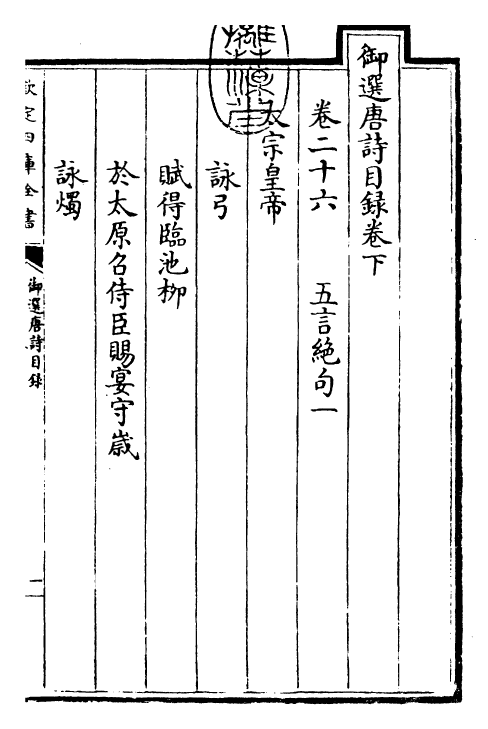 御選唐詩目録卷下
卷二十六 五言絶句一
太宗皇帝
詠弓
賦得臨池柳
於太原召侍臣賜宴守歲
詠燭
欽定四庫全書
御選唐詩目録